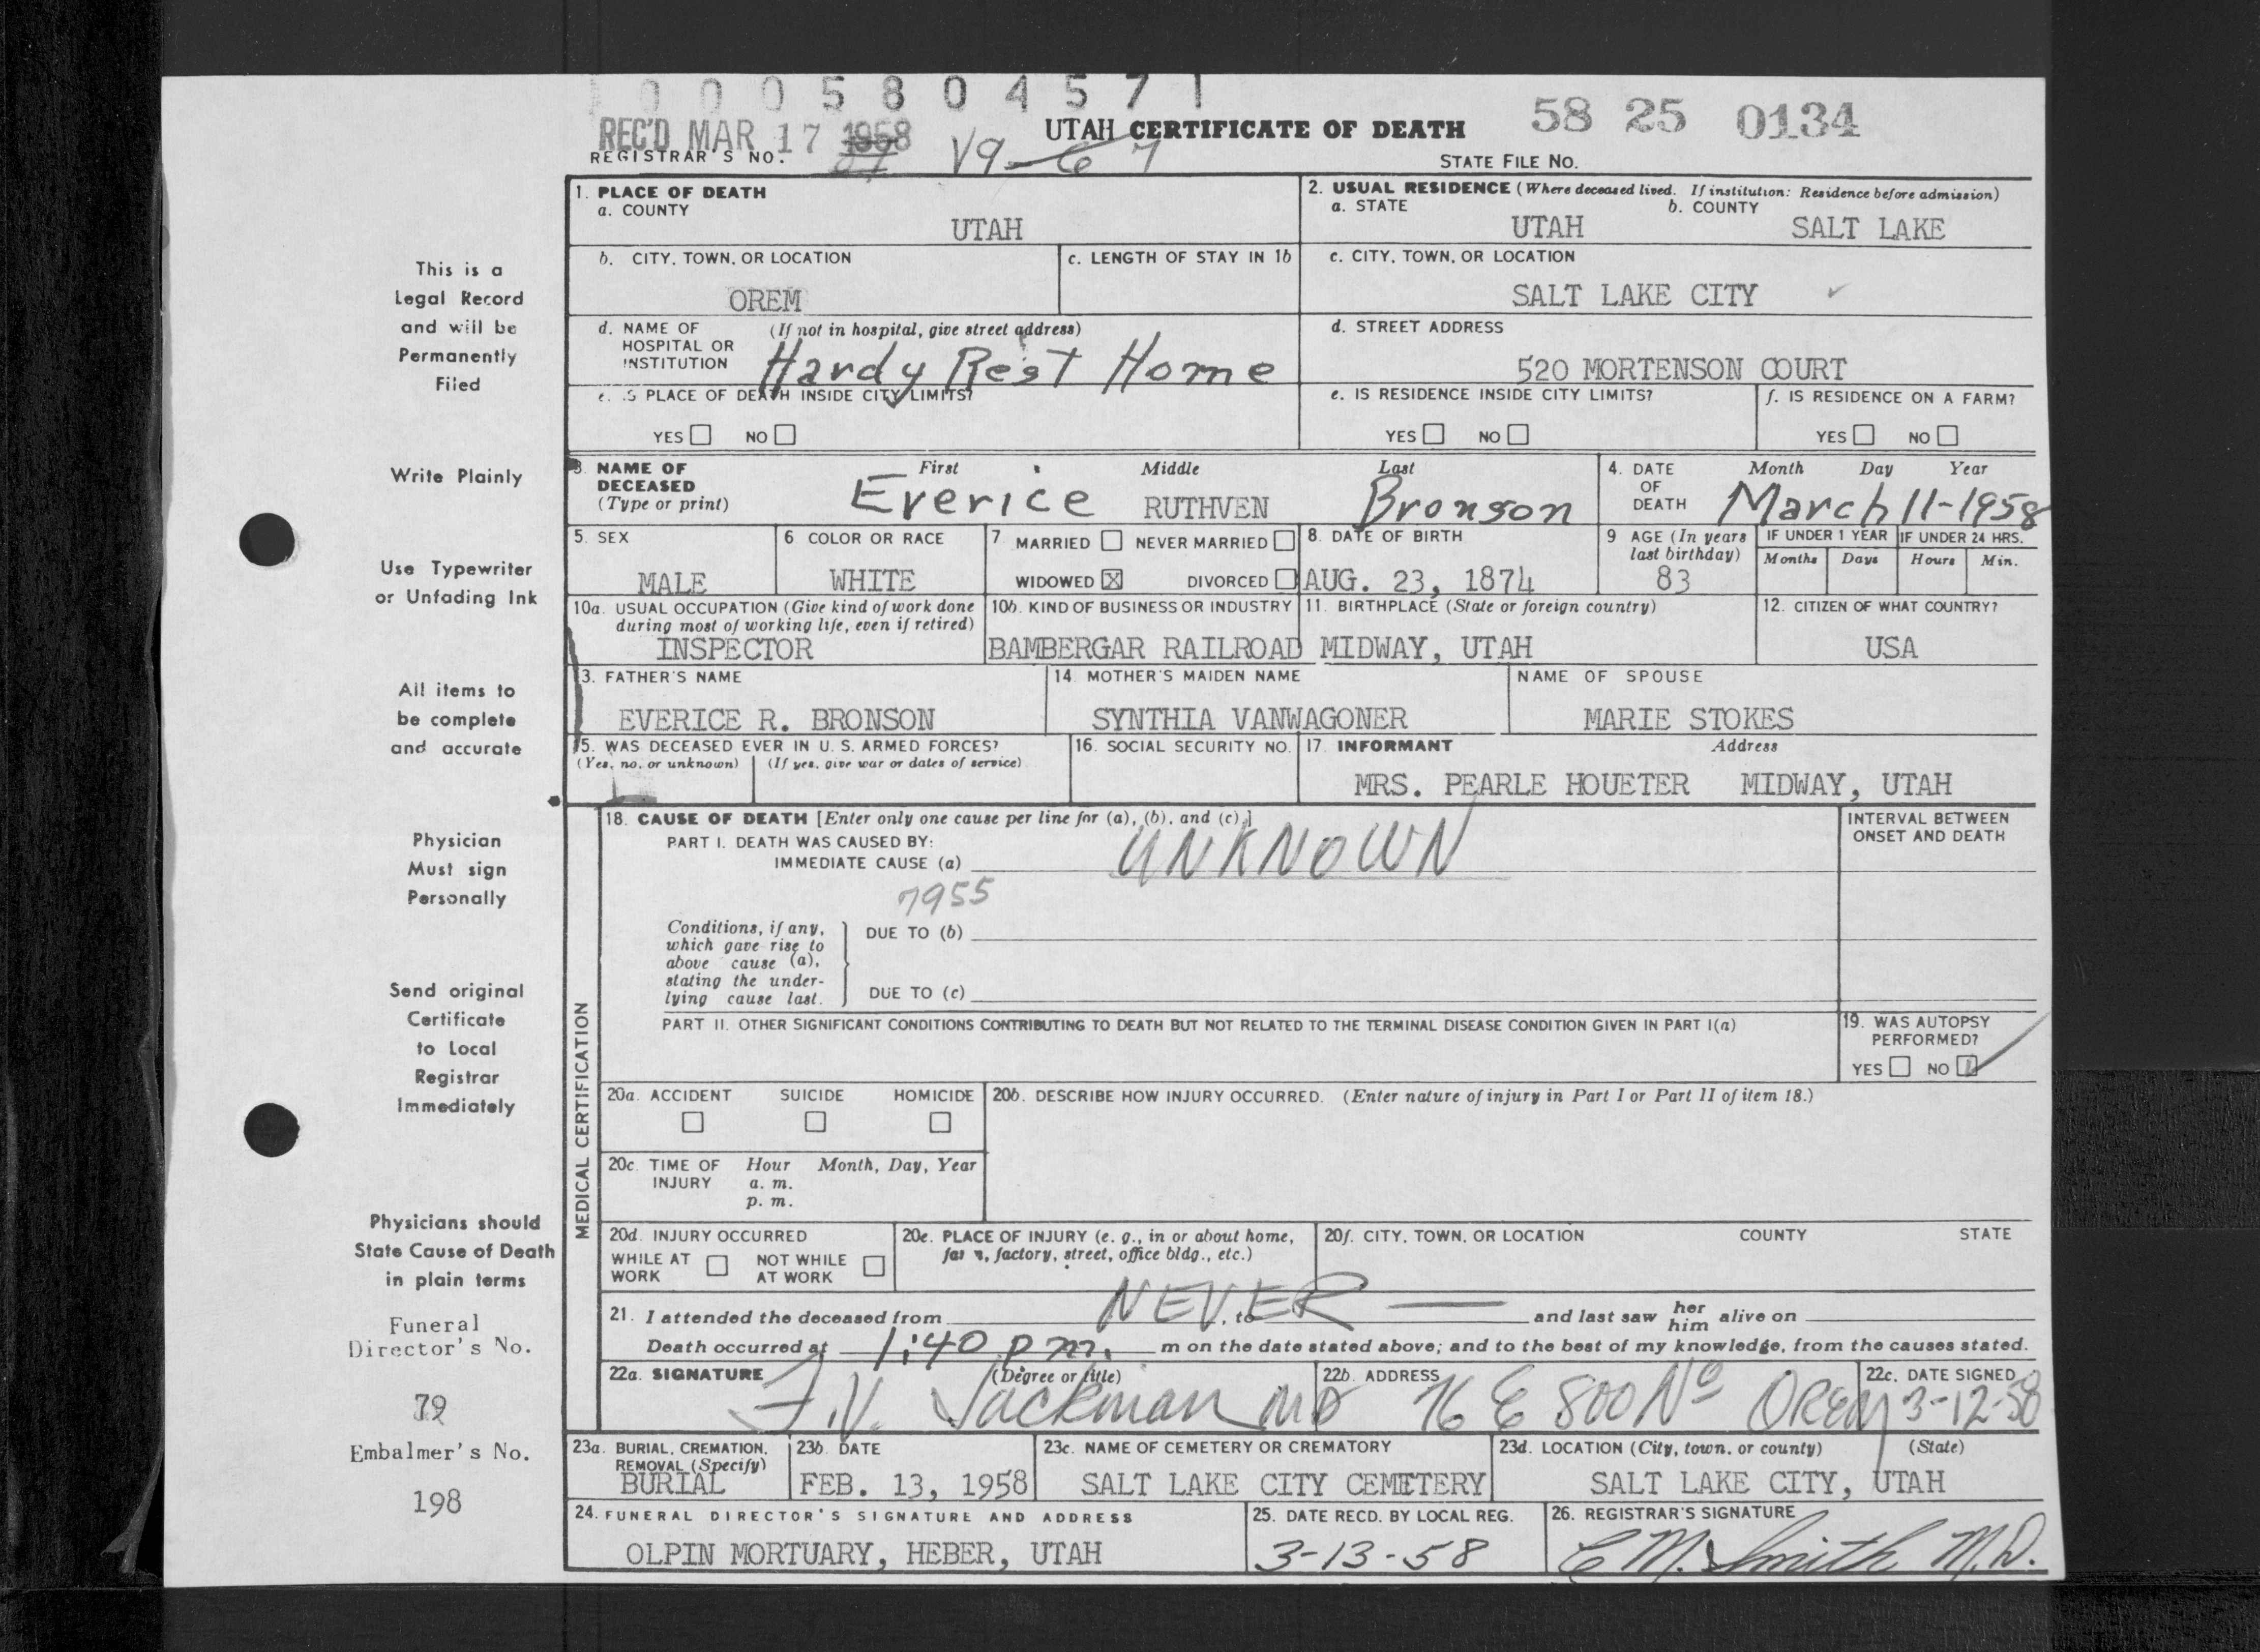 0 0 0 5 8 0 4 5 7 1
REC'D MAR 17 1958
UTAH CERTIFICATE OF DEATH
58 25 0134
REGISTRAR'S NO.
STATE FILE NO.
1. PLACE OF DEATH
a. COUNTY
UTAH
2. USUAL RESIDENCE (Where deceased lived. If institution: Residence before admission)
a. STATE
UTAH
b. COUNTY
SALT LAKE
b. CITY, TOWN, OR LOCATION
OREM
c. LENGTH OF STAY IN 1b
c. CITY, TOWN, OR LOCATION
SALT LAKE CITY
d. NAME OF HOSPITAL OR INSTITUTION
(If not in hospital, give street address)
Hardy Rest Home
d. STREET ADDRESS
520 MORTENSON COURT
e. IS PLACE OF DEATH INSIDE CITY LIMITS?
YES NO
e. IS RESIDENCE INSIDE CITY LIMITS?
YES NO
f. IS RESIDENCE ON A FARM?
YES NO
3. NAME OF DECEASED
(Type or print)
First Middle Last
Everice RUTHVEN Bronson
4. DATE OF DEATH
Month Day Year
March 11-1958
5. SEX
MALE
6 COLOR OR RACE
WHITE
7 MARRIED NEVER MARRIED
WIDOWED X DIVORCED
8. DATE OF BIRTH
AUG. 23, 1874
9 AGE (In years last birthday)
83
IF UNDER 1 YEAR
Months Days
IF UNDER 24 HRS.
Hours Min.
10a. USUAL OCCUPATION (Give kind of work done during most of working life, even if retired)
INSPECTOR
10b. KIND OF BUSINESS OR INDUSTRY
BAMBERGAR RAILROAD
11. BIRTHPLACE (State or foreign country)
MIDWAY, UTAH
12. CITIZEN OF WHAT COUNTRY?
USA
13. FATHER'S NAME
EVERICE R. BRONSON
14. MOTHER'S MAIDEN NAME
SYNTHIA VANWAGONER
NAME OF SPOUSE
MARIE STOKES
15. WAS DECEASED EVER IN U. S. ARMED FORCES?
(Yes, no, or unknown) (If yes, give war or dates of service)
16. SOCIAL SECURITY NO.
17. INFORMANT Address
MRS. PEARLE HOUETER MIDWAY, UTAH
MEDICAL CERTIFICATION
18. CAUSE OF DEATH [Enter only one cause per line for (a), (b), and (c).]
PART I. DEATH WAS CAUSED BY:
IMMEDIATE CAUSE (a)
UNKNOWN
7955
INTERVAL BETWEEN ONSET AND DEATH
Conditions, if any, which gave rise to above cause (a), stating the underlying cause last.
DUE TO (b)
DUE TO (c)
PART II. OTHER SIGNIFICANT CONDITIONS CONTRIBUTING TO DEATH BUT NOT RELATED TO THE TERMINAL DISEASE CONDITION GIVEN IN PART I(a)
19. WAS AUTOPSY PERFORMED?
YES NO
20a. ACCIDENT SUICIDE HOMICIDE
20b. DESCRIBE HOW INJURY OCCURRED. (Enter nature of injury in Part I or Part II of item 18.)
20c. TIME OF INJURY
Hour Month, Day, Year
a. m.
p. m.
20d. INJURY OCCURRED
WHILE AT WORK NOT WHILE AT WORK
20e. PLACE OF INJURY (e. g., in or about home, farm, factory, street, office bldg., etc.)
20f. CITY, TOWN, OR LOCATION COUNTY STATE
21. I attended the deceased from NEVER, to — and last saw her him alive on
Death occurred at 1:40 p m. m on the date stated above; and to the best of my knowledge, from the causes stated.
22a. SIGNATURE (Degree or title)
F.V. Jackman MD
22b. ADDRESS
76 E 800 No OREM
22c. DATE SIGNED
3-12-58
23a. BURIAL, CREMATION, REMOVAL (Specify)
BURIAL
23b. DATE
FEB. 13, 1958
23c. NAME OF CEMETERY OR CREMATORY
SALT LAKE CITY CEMETERY
23d. LOCATION (City, town, or county) (State)
SALT LAKE CITY, UTAH
24. FUNERAL DIRECTOR'S SIGNATURE AND ADDRESS
OLPIN MORTUARY, HEBER, UTAH
25. DATE RECD. BY LOCAL REG.
3-13-58
26. REGISTRAR'S SIGNATURE
C M. Smith M.D.
This is a
Legal Record
and will be
Permanently
Filed
Write Plainly
Use Typewriter
or Unfading Ink
All items to
be complete
and accurate
Physician
Must sign
Personally
Send original
Certificate
to Local
Registrar
Immediately
Physicians should
State Cause of Death
in plain terms
Funeral
Director's No.
79
Embalmer's No.
198